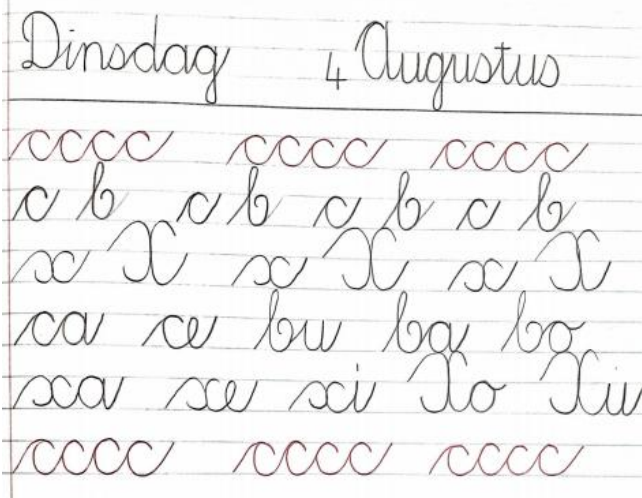 Dinsdag 4 Augustus
cccc cccc cccc
c b c b c b c b
x X x X x X
ca ce bu ba bo
xa xe xi Xo Xu
cccc cccc cccc